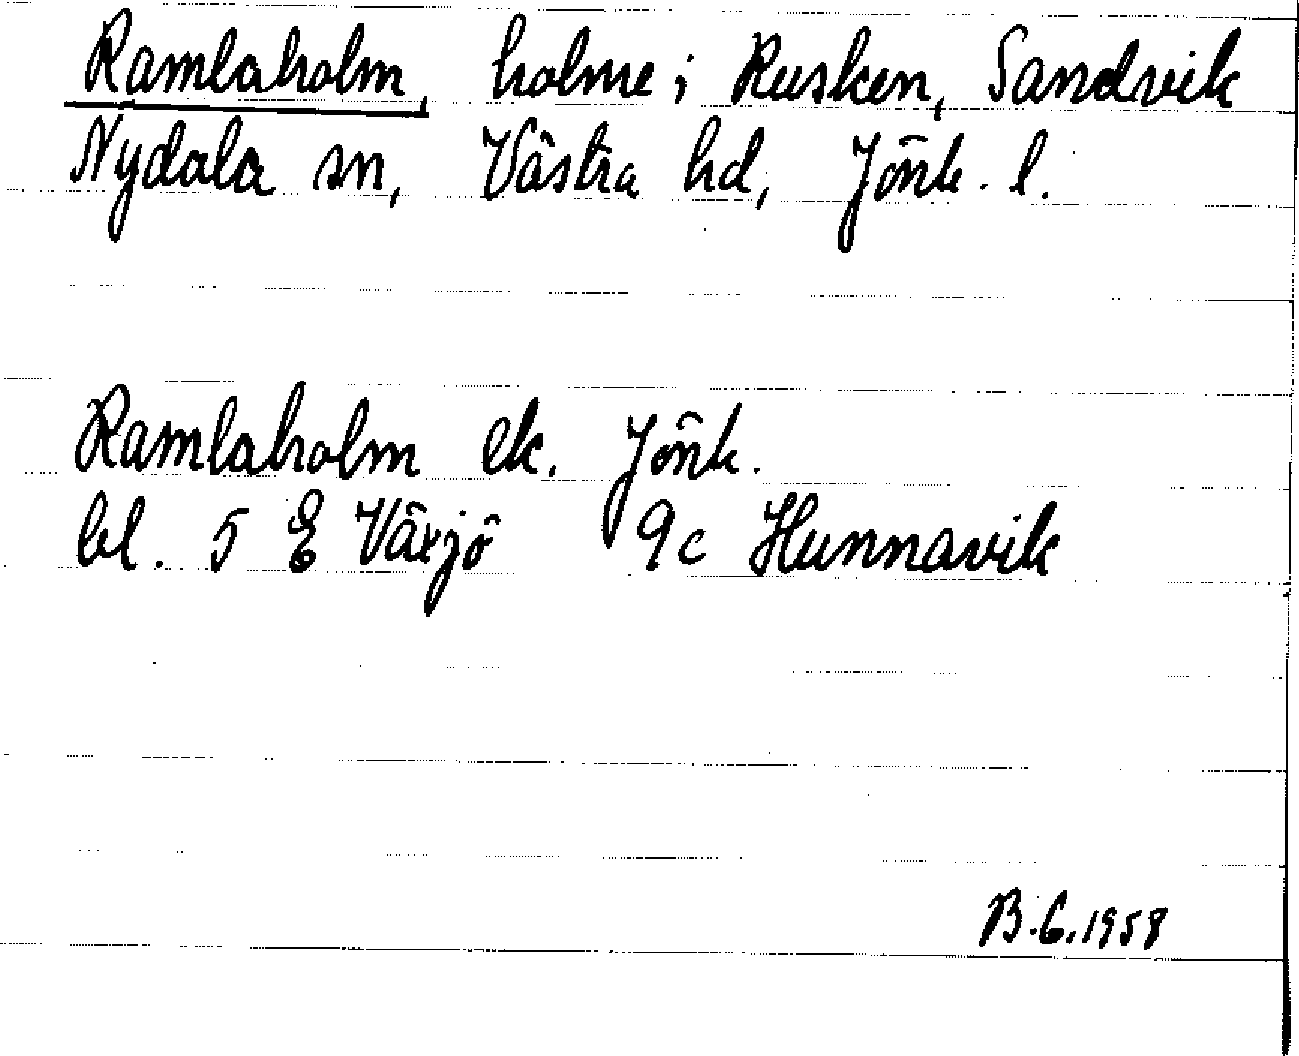 Ramlaholm, holme i Rusken, Sandvik
Nydala sn, Västra hd, Jönk. l.
Ramlaholm ek. Jönk.
bl. 5 E Växjö 9c Hunnavik
B.G. 1958